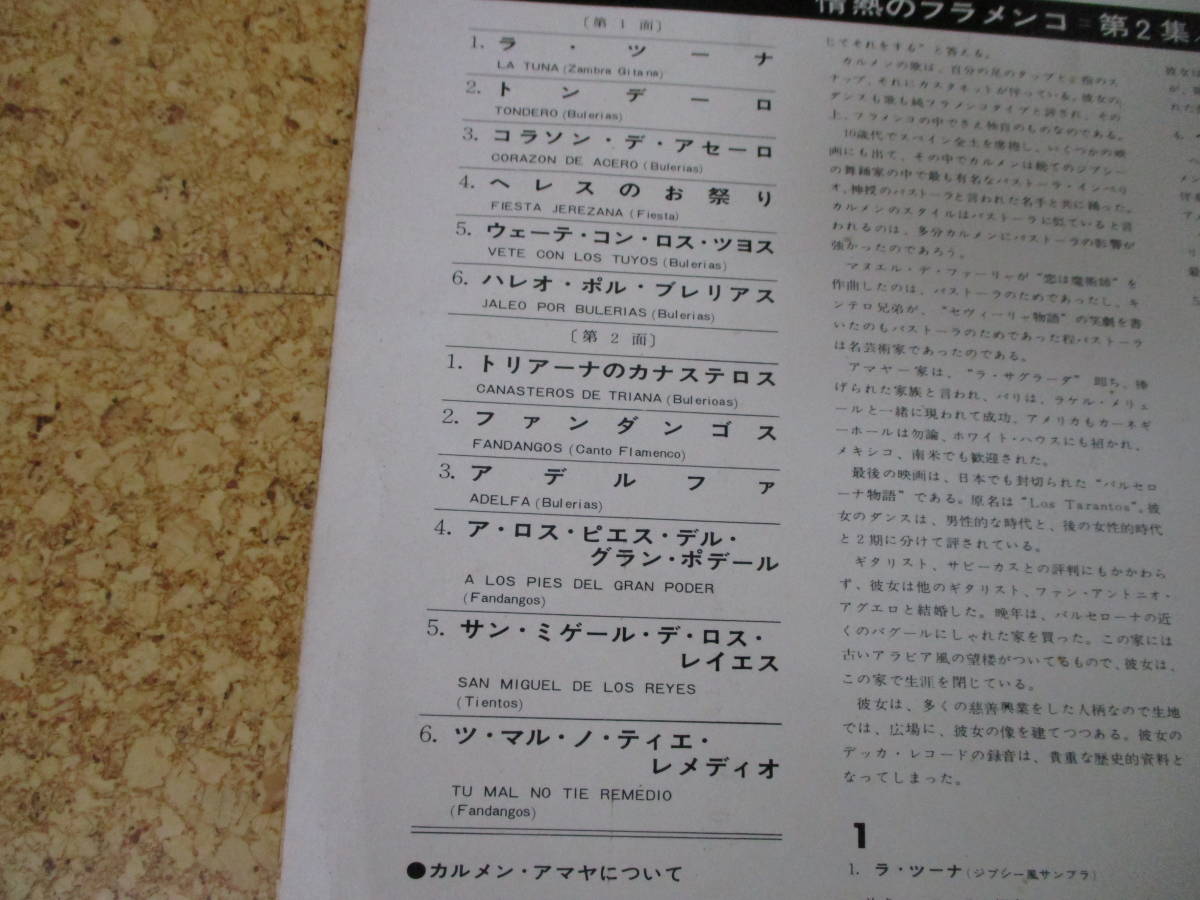 情熱のフラメンコ=第2集
〔第1面〕
1. ラ・ツーナ
LA TUNA (Zambra Gitana)
2. トンデーロ
TONDERO (Bulerias)
3. コラソン・デ・アセーロ
CORAZON DE ACERO (Bulerias)
4. ヘレスのお祭り
FIESTA JEREZANA (Fiesta)
5. ウェーテ・コン・ロス・ツヨス
VETE CON LOS TUYOS (Bulerias)
6. ハレオ・ポル・ブレリアス
JALEO POR BULERIAS (Bulerias)
〔第2面〕
1. トリアーナのカナステロス
CANASTEROS DE TRIANA (Bulerioas)
2. ファンダンゴス
FANDANGOS (Canto Flamenco)
3. アデルファ
ADELFA (Bulerias)
4. ア・ロス・ピエス・デル・
グラン・ポデール
A LOS PIES DEL GRAN PODER
(Fandangos)
5. サン・ミゲール・デ・ロス・
レイエス
SAN MIGUEL DE LOS REYES
(Tientos)
6. ツ・マル・ノ・ティエ・
レメディオ
TU MAL NO TIE REMEDIO
(Fandangos)
●カルメン・アマヤについて
じてそれをする”と答える。
カルメンの歌は、自分の足のタップと指のス
ナップ、それにカスタネットが伴っている。彼女の
ダンスも歌も純フラメンコタイプと評され、その
上、フラメンコの中でさえ独自のものなのである。
10歳代でスペイン全土を席捲し、いくつかの映
画にも出て、その中でカルメンは晩てのジプシー
の舞踊家の中で最も有名なパストーラ・インペリ
オ、神授のパストーラと言われた名手と共に踊った。
カルメンのスタイルはパストーラに似ていると言
われるのは、多分カルメンにパストーラの影響が
強かったのであろう。
マヌエル・デ・ファーリャが“恋は魔術師”を
作曲したのは、パストーラのためであったし、キ
ンテロ兄弟が、“セヴィーリャ物語”の笑劇を書
いたのもパストーラのためであった程パストーラ
は名芸術家であったのである。
アマヤ一家は、“ラ・サグラーダ”即ち、捧
げられた家族と言われ、パリは、ラケル・メリェ
ールと一緒に現われて成功、アメリカもカーネギ
ーホールは勿論、ホワイト・ハウスにも招かれ、
メキシコ、南米でも歓迎された。
最後の映画は、日本でも封切られた“バルセロ
ーナ物語”である。原名は“Los Tarantos”。彼
女のダンスは、男性的な時代と、後の女性的時代
と2期に分けて評されている。
ギタリスト、サビーカスとの評判にもかかわら
ず、彼女は他のギタリスト、ファン・アントニオ・
アグエロと結婚した。晩年は、バルセローナの近
くのバグールにしゃれた家を買った。この家には
古いアラビア風の望楼がついてるもので、彼女は、
この家で生涯を閉じている。
彼女は、多くの慈善興業をした人柄なので生地
では、広場に、彼女の像を建てつつある。彼女の
デッカ・レコードの録音は、貴重な歴史的資料と
なってしまった。
1
1. ラ・ツーナ(ジプシー風サンブラ)